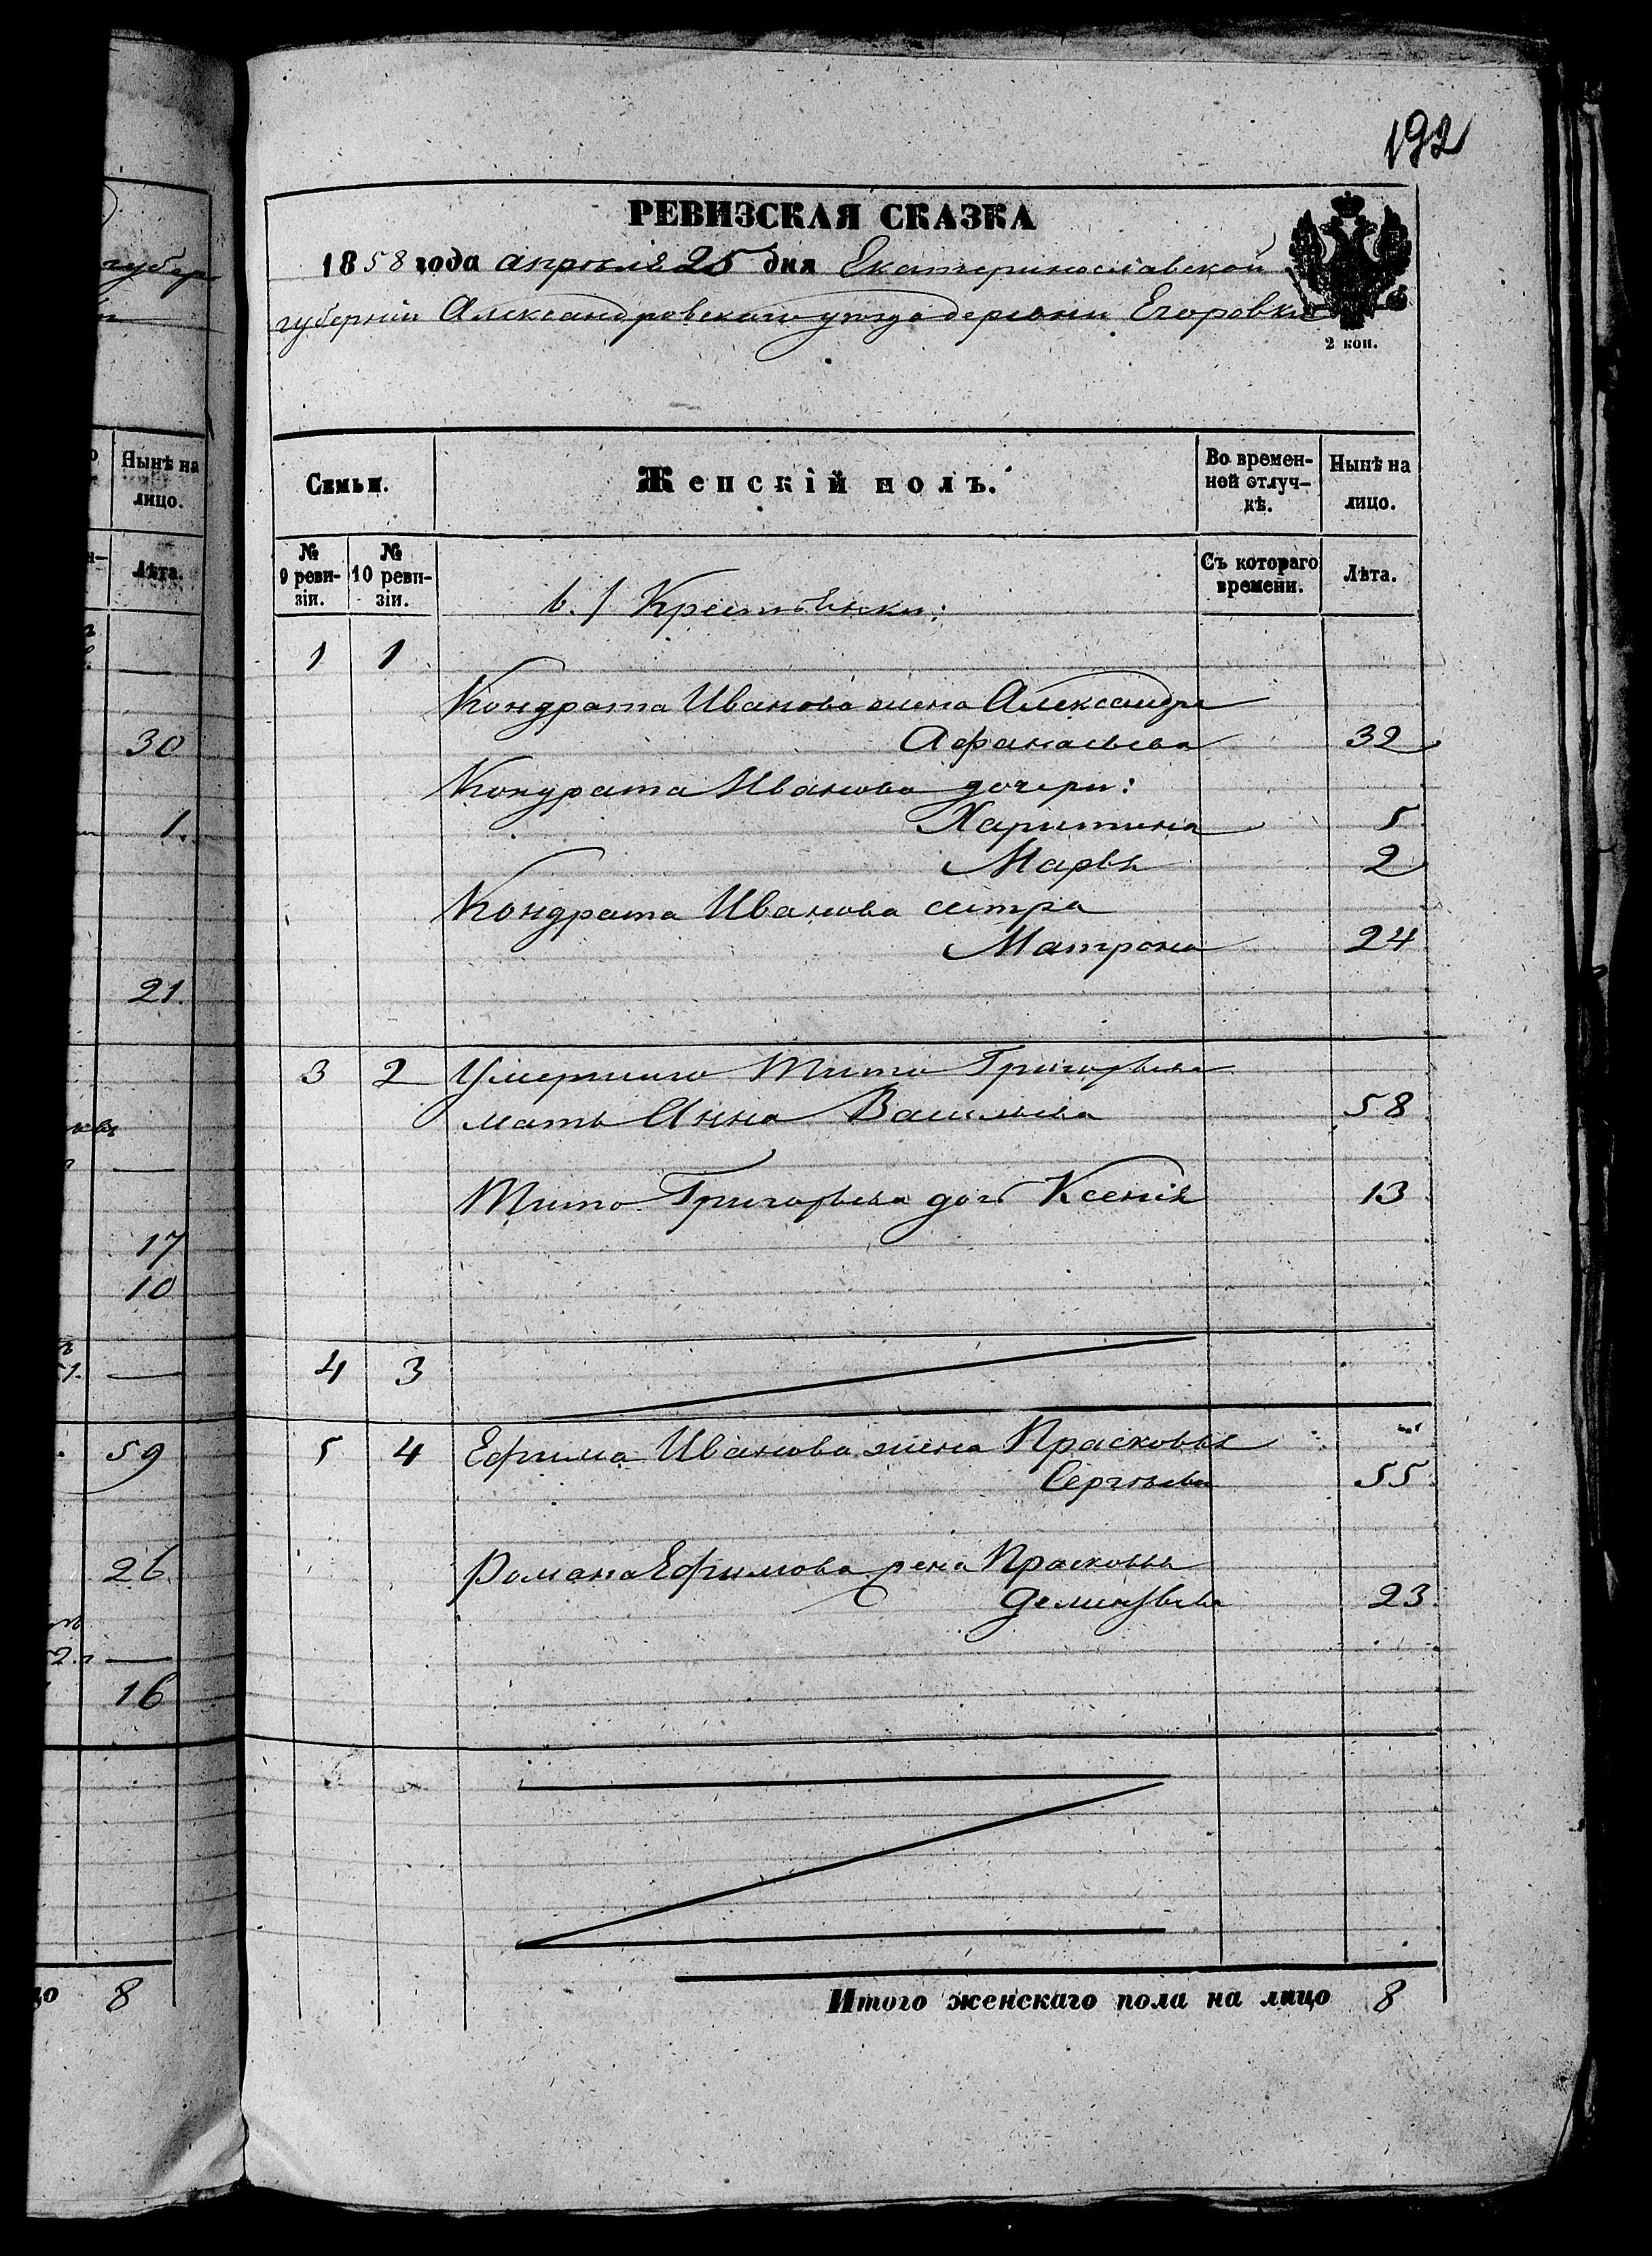 192
РЕВИЗСКАЯ СКАЗКА
1858 года апреля 25 дня Екатеринославской
губерніи Александровскаго уезда деревни Егоровки
2 коп.
Семьи.
Женскій полъ.
Во времен-
ной отлуч-
кѣ.
Нынѣ на
лицо.
№
9 реви-
зіи.
№
10 реви-
зіи.
Съ котораго
времени.
Лѣта.
Крестьянки:
1 1
Кондрата Иванова жена Александра
Афанасьева 32
Кондрата Иванова дочери:
Харитина 5
Марья 2
Кондрата Иванова сестра
Матрона 24
3 2 Умершаго Тита Григорьева
мать Анна Васильева 58
Тита Григорьева дочь Ксенія 13
4 3
5 4 Ефима Иванова жена Прасковья
Сергѣева 55
Романа Ефимова жена Прасковья
Дементьева 23
Итого женскаго пола на лицо 8
губер
Нынѣ на
лицо.
Лѣта.
30
1.
21.
17
10
59
26
16
8